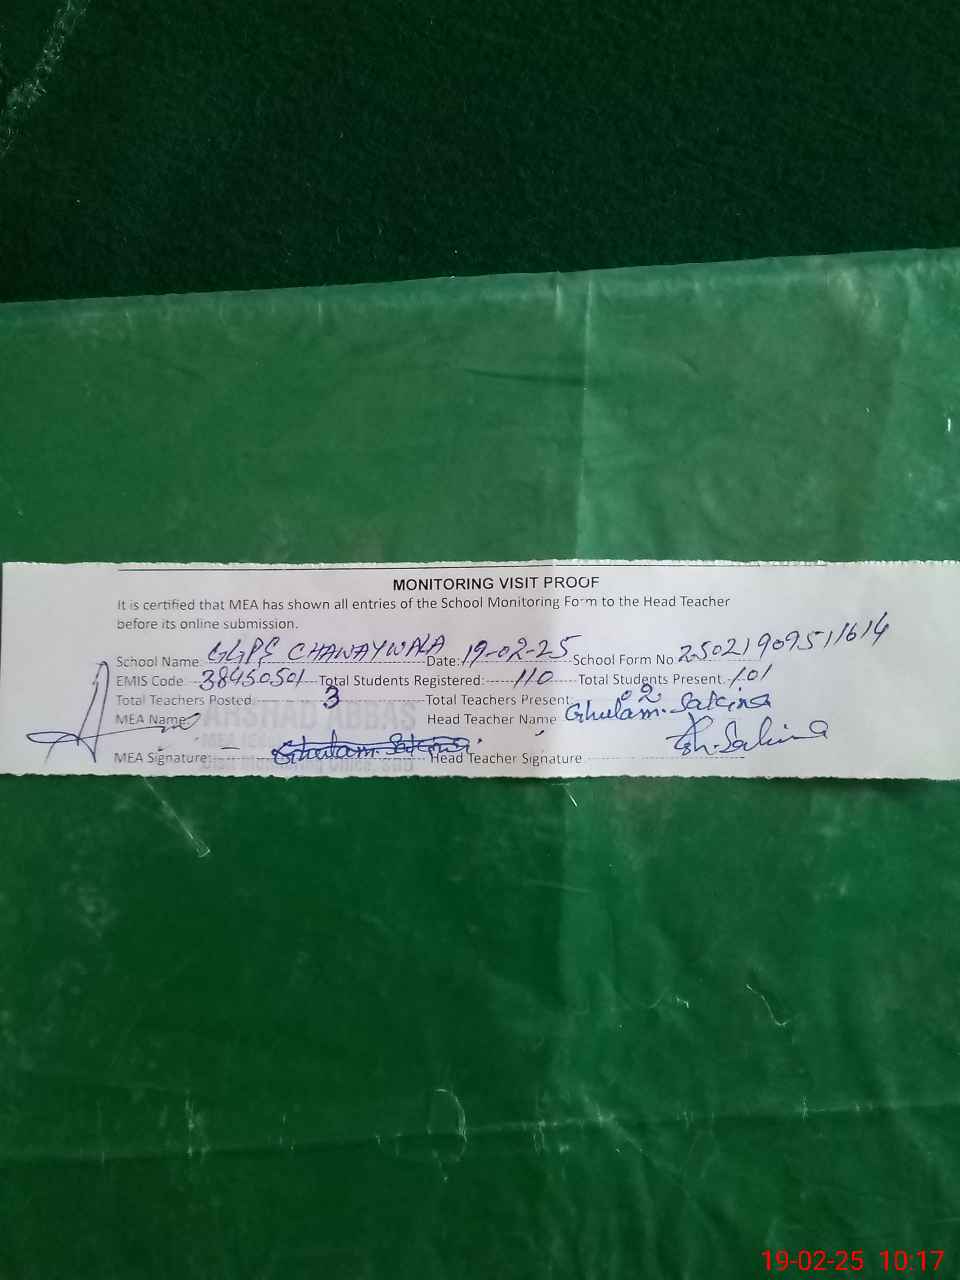 MONITORING VISIT PROOF
It is certified that MEA has shown all entries of the School Monitoring Form to the Head Teacher
before its online submission.
School Name GGPS CHAWAYWALA Date: 19-02-25 School Form No 2502190951 1614
EMIS Code 38450501 Total Students Registered: 110 Total Students Present. 101
Total Teachers Posted 3 Total Teachers Present: 02
MEA Name: ARSHAD ABBAS Head Teacher Name Ghulam Sakina
MEA Signature: Ghulam Sakina Head Teacher Signature Gh. Sakina
19-02-25 10:17